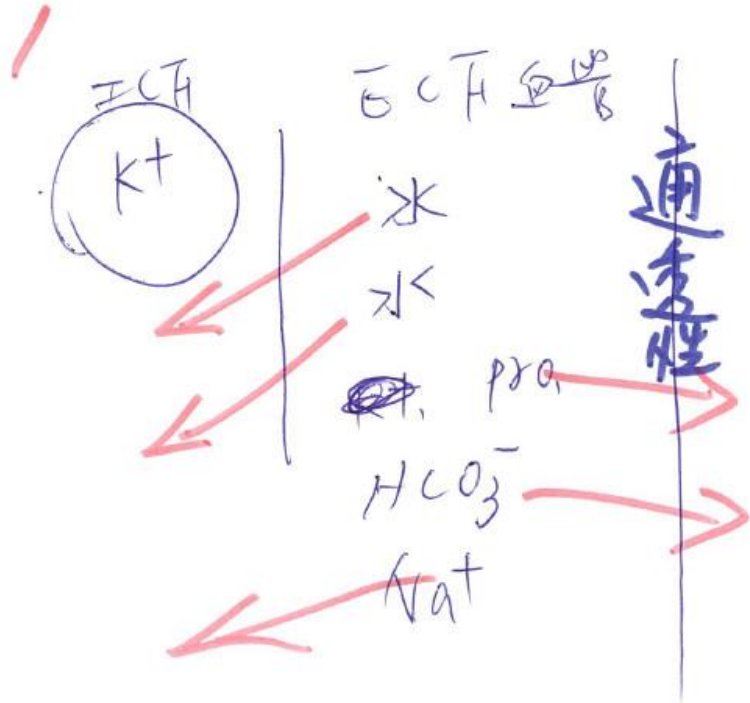 ICF
ECF 血
K+
水
水
pro.
HCO3-
Na+
通
透
性